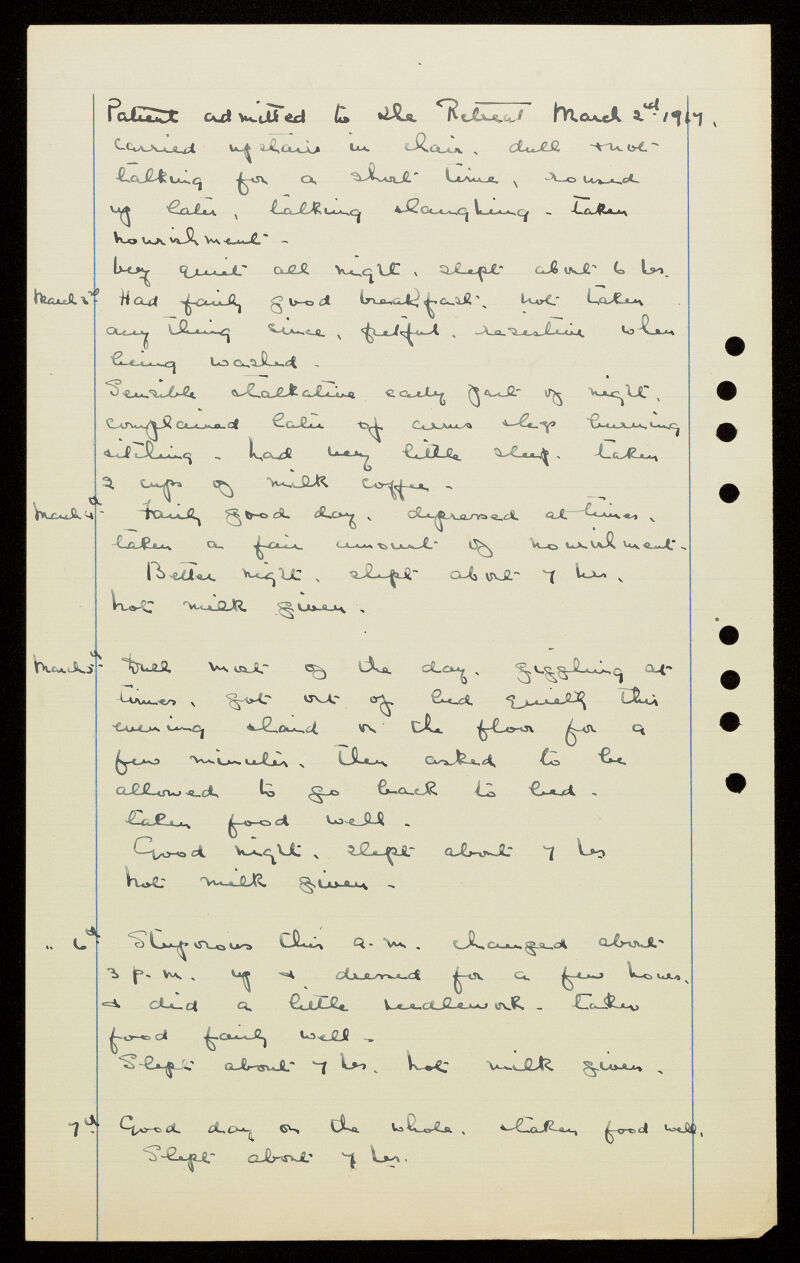 Patient admitted to The Retreat March 2nd 1917.
carried upstairs in chair. dull & not
talking for a short time, roused
up later, talking & laughing. taken
nourishment -
Very quiet all night. slept about 6 hrs.
March 3rd Had fairly good breakfast, not taken
any thing since, fretful. resistive when
being washed.
Sensible & talkative early part of night,
complained later of arms & legs burning
& itching - had very little sleep. taken
2 cups of milk coffee -
March 4th Fairly good day, depressed at times,
taken a fair amount of nourishment -
Better night, slept about 7 hrs,
hot milk given.
March 5th Dull most of the day. giggling at
times, got out of bed quietly this
evening & laid on the floor for a
few minutes, then asked to be
allowed to go back to bed -
taken food well.
Good night, slept about 7 hrs
hot milk given -
" 6th Stuporous this a.m. changed about
3 p.m. up & dressed for a few hours,
& did a little needlework - taken
food fairly well -
Slept about 7 hrs. hot milk given.
7th Good day on the whole. & taken food well.
Slept about 7 hrs.